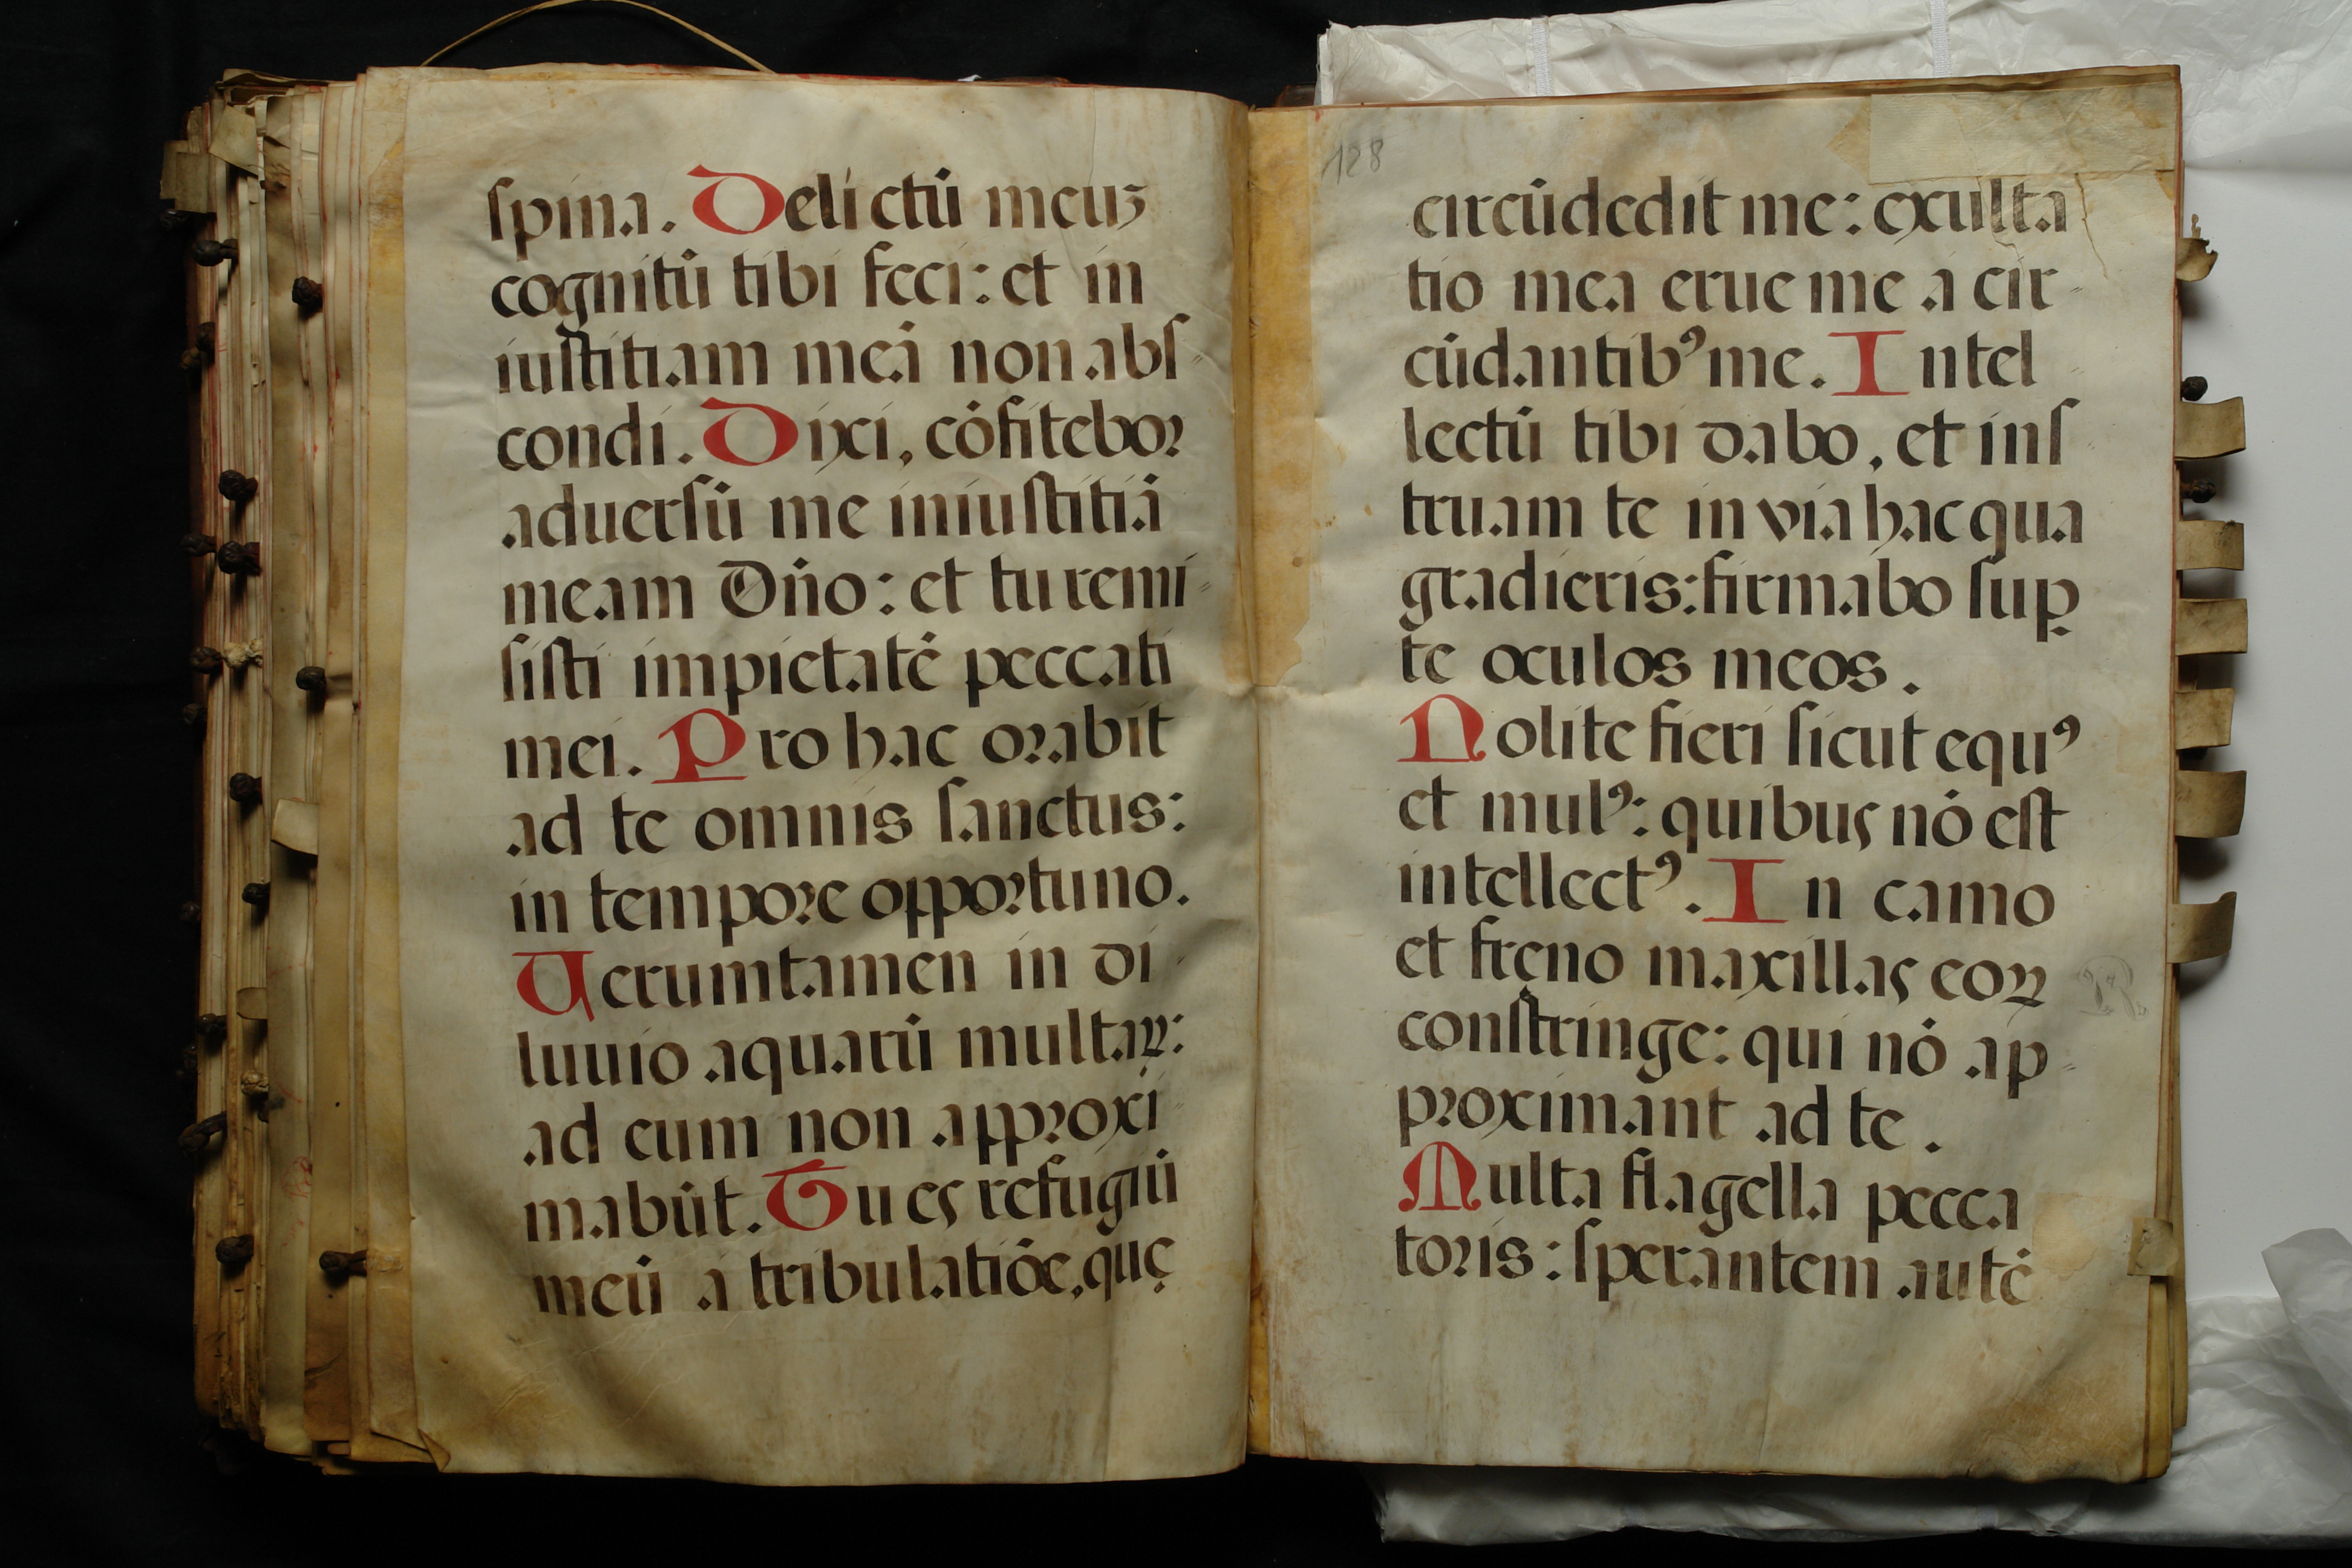 ſpina. Delictū meuʒ
cognitū tibi feci: et in
iuſtitiam meā non abſ-
condi. Dixi, cōfiteboꝛ
aduerſū me iniuſtitiā
meam Dn̄o: et tu remi-
ſiſti impietatē peccati
mei. Pro hac oꝛabit
ad te omnis ſanctus:
in tempoꝛe oppoꝛtuno.
Uerumtamen in di-
luuio aquarū multaꝝ:
ad eum non appꝛoxi-
mabūt. Tu es refugiū
meū a tribulatiōe, quę
128
circūdedit me: exulta
tio mea erue me a cir-
cūdantibꝰ me. Intel
lectū tibi dabo, et inſ
truam te in via hac qua
gradieris: firmabo ſuꝑ
te oculos meos.
Nolite fieri ſicut equꝰ
et mulꝰ: quibus nō eſt
intellectꝰ. In camo
et fręno maxillas eoꝝ
conſtringe: qui nō ap-
pꝛoximant ad te.
Multa flagella pecca
toꝛis: ſperantem autē